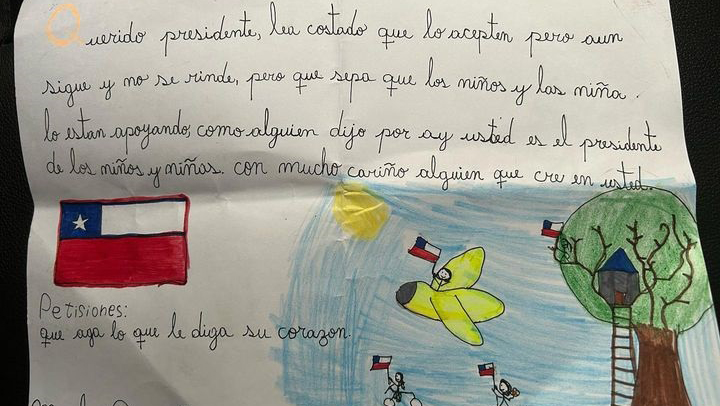 Querido presidente, lea costado que lo acepten pero aun
sigue y no se rinde, pero que sepa que los niños y las niña.
lo estan apoyando, como alguien dijo por ay usted es el presidente
de los niños y niñas. con mucho cariño alguien que cre en usted.
Petisiones:
que aga lo que le diga su corazon.